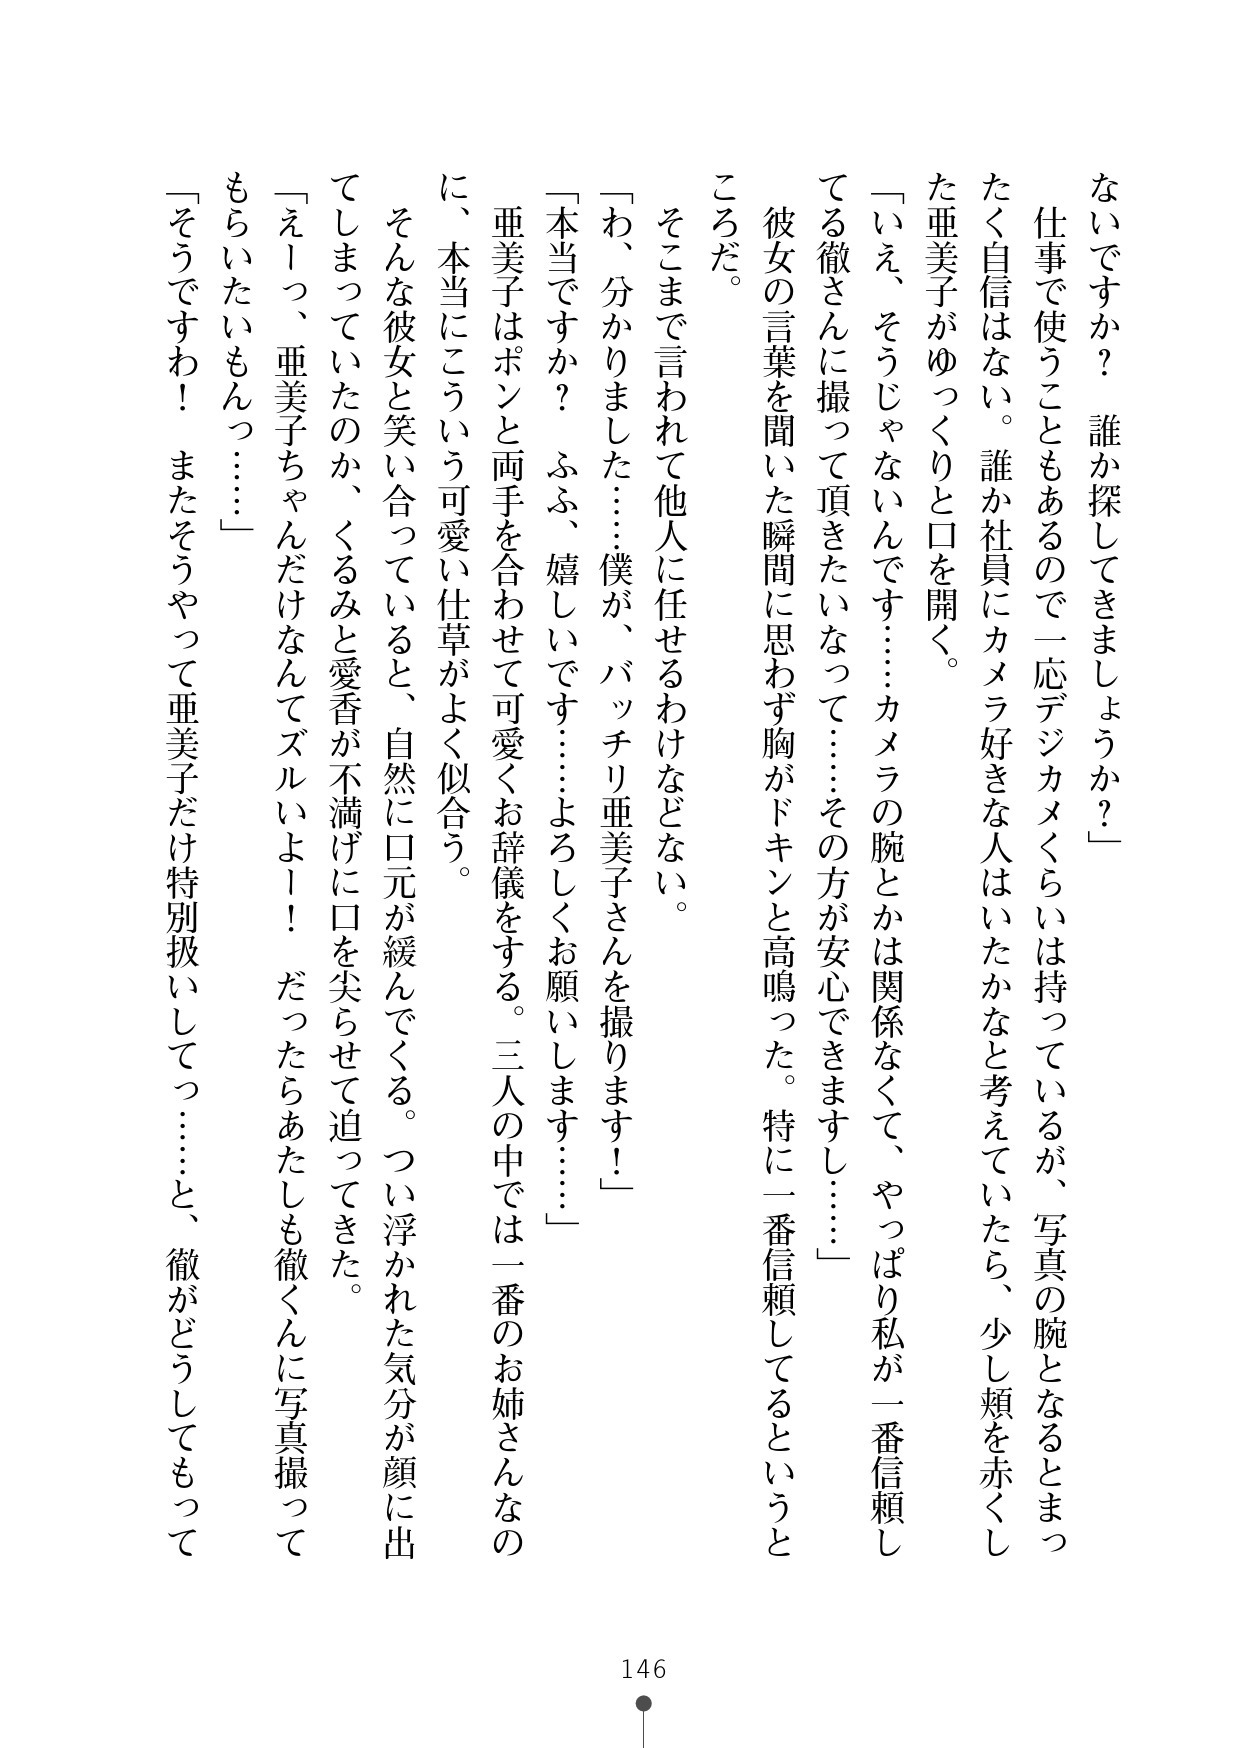 ないですか？　誰か探してきましょうか？」
　仕事で使うこともあるので一応デジカメくらいは持っているが、写真の腕となるとまっ
たく自信はない。誰か社員にカメラ好きな人はいたかなと考えていたら、少し頬を赤くし
た亜美子がゆっくりと口を開く。
「いえ、そうじゃないんです……カメラの腕とかは関係なくて、やっぱり私が一番信頼し
てる徹さんに撮って頂きたいなって……その方が安心できますし……」
　彼女の言葉を聞いた瞬間に思わず胸がドキンと高鳴った。特に一番信頼してるというと
ころだ。
　そこまで言われて他人に任せるわけなどない。
「わ、分かりました……僕が、バッチリ亜美子さんを撮ります！」
「本当ですか？　ふふ、嬉しいです……よろしくお願いします……」
　亜美子はポンと両手を合わせて可愛くお辞儀をする。三人の中では一番のお姉さんなの
に、本当にこういう可愛い仕草がよく似合う。
　そんな彼女と笑い合っていると、自然に口元が緩んでくる。つい浮かれた気分が顔に出
てしまっていたのか、くるみと愛香が不満げに口を尖らせて迫ってきた。
「えーっ、亜美子ちゃんだけなんてズルいよー！　だったらあたしも徹くんに写真撮って
もらいたいもんっ……」
「そうですわ！　またそうやって亜美子だけ特別扱いしてっ……と、徹がどうしてもって
146